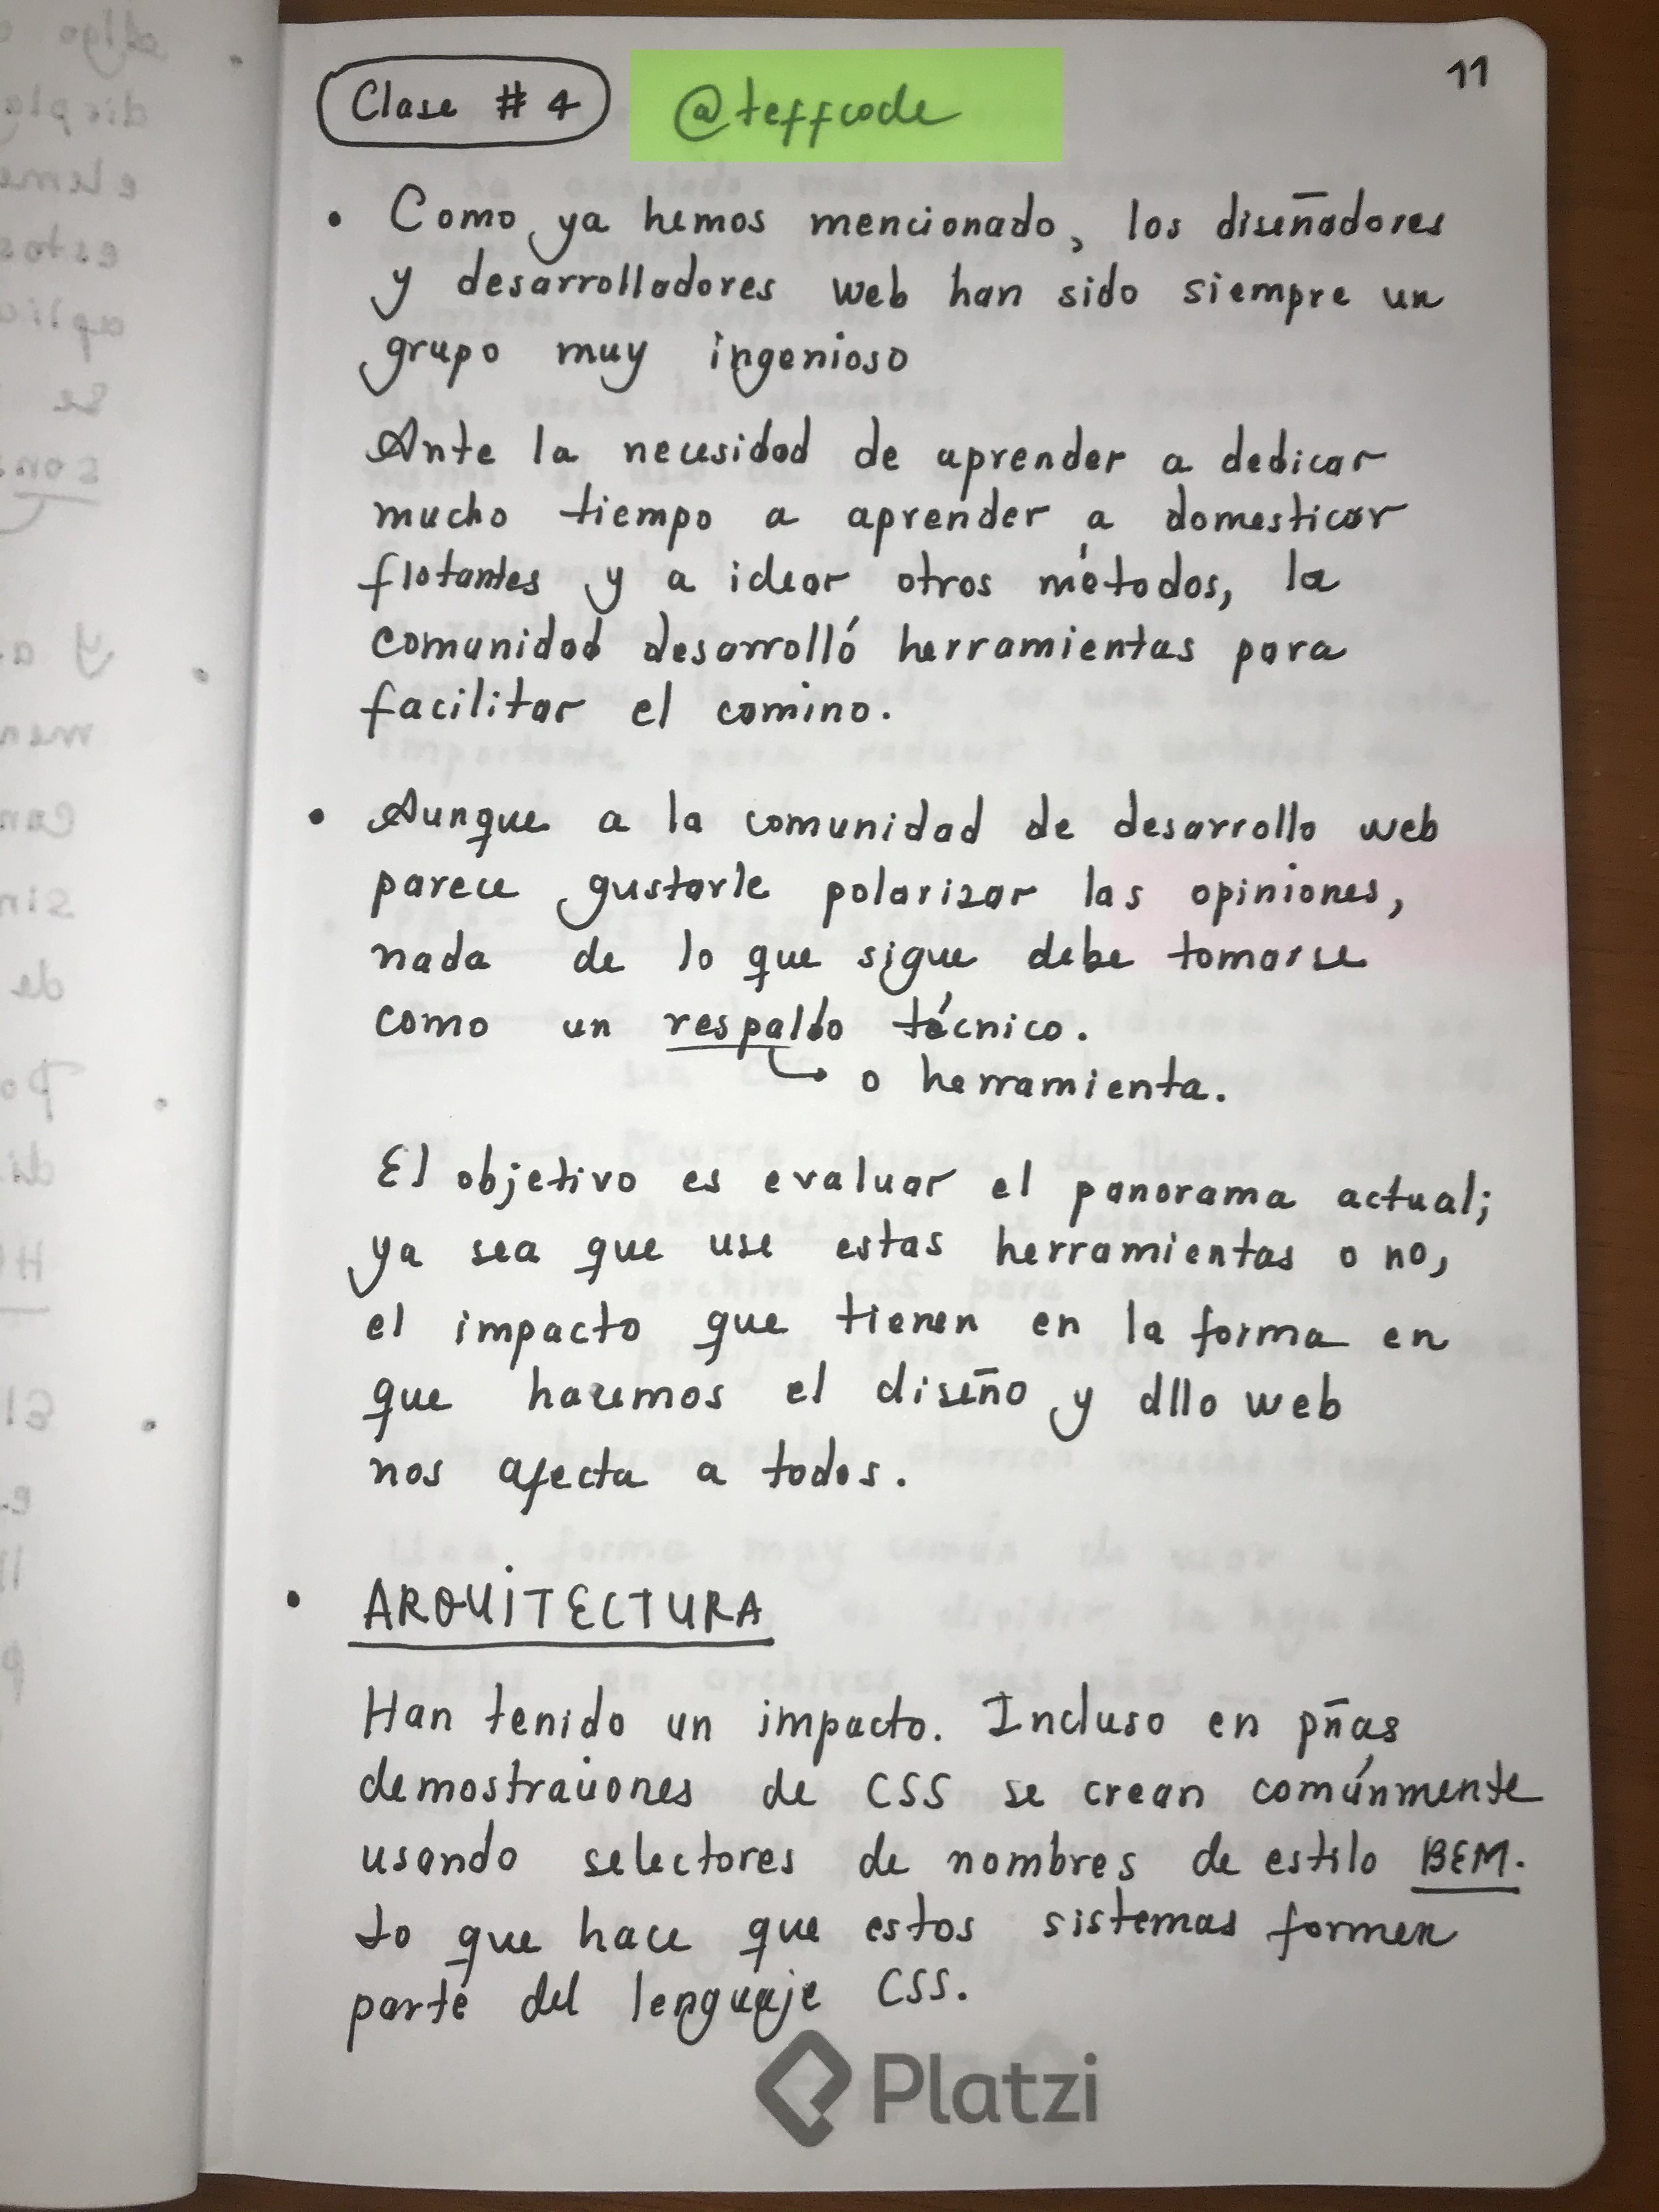 11
Clase # 4 @teffcode
• Como ya hemos mencionado, los diseñadores
y desarrolladores web han sido siempre un
grupo muy ingenioso
Ante la necesidad de aprender a dedicar
mucho tiempo a aprender a domesticar
flotantes y a idear otros métodos, la
comunidad desarrolló herramientas para
facilitar el camino.
• Aunque a la comunidad de desarrollo web
parece gustarle polarizar las opiniones,
nada de lo que sigue debe tomarse
como un respaldo técnico.
↳ o herramienta.
El objetivo es evaluar el panorama actual;
ya sea que use estas herramientas o no,
el impacto que tienen en la forma en
que hacemos el diseño y dllo web
nos afecta a todos.
• ARQUITECTURA
Han tenido un impacto. Incluso en pñas
demostraciones de CSS se crean comúnmente
usando selectores de nombres de estilo BEM.
Lo que hace que estos sistemas formen
parte del lenguaje CSS.
Platzi